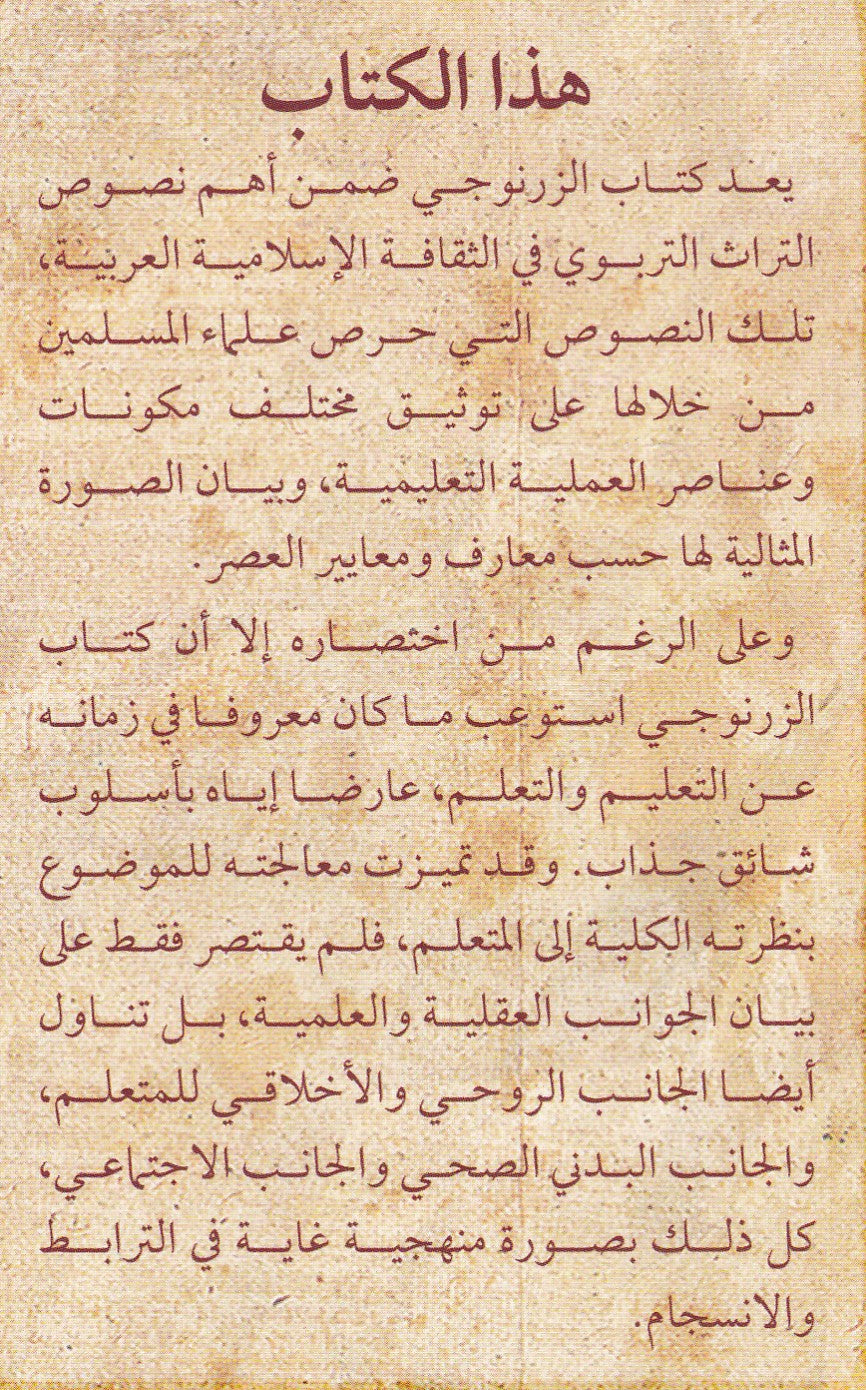 هذا الكتاب
يعد كتاب الزرنوجي ضمن أهم نصوص
التراث التربوي في الثقافة الإسلامية العربية،
تلك النصوص التي حرص علماء المسلمين
من خلالها على توثيق مختلف مكونات
وعناصر العملية التعليمية، وبيان الصورة
المثالية لها حسب معارف ومعايير العصر.
وعلى الرغم من اختصاره إلا أن كتاب
الزرنوجي استوعب ما كان معروفا في زمانه
عن التعليم والتعلم، عارضا إياه بأسلوب
شائق جذاب. وقد تميزت معالجته للموضوع
بنظرته الكلية إلى المتعلم، فلم يقتصر فقط على
بيان الجوانب العقلية والعلمية، بل تناول
أيضا الجانب الروحي والأخلاقي للمتعلم،
والجانب البدني الصحي والجانب الاجتماعي،
كل ذلك بصورة منهجية غاية في الترابط
والانسجام.